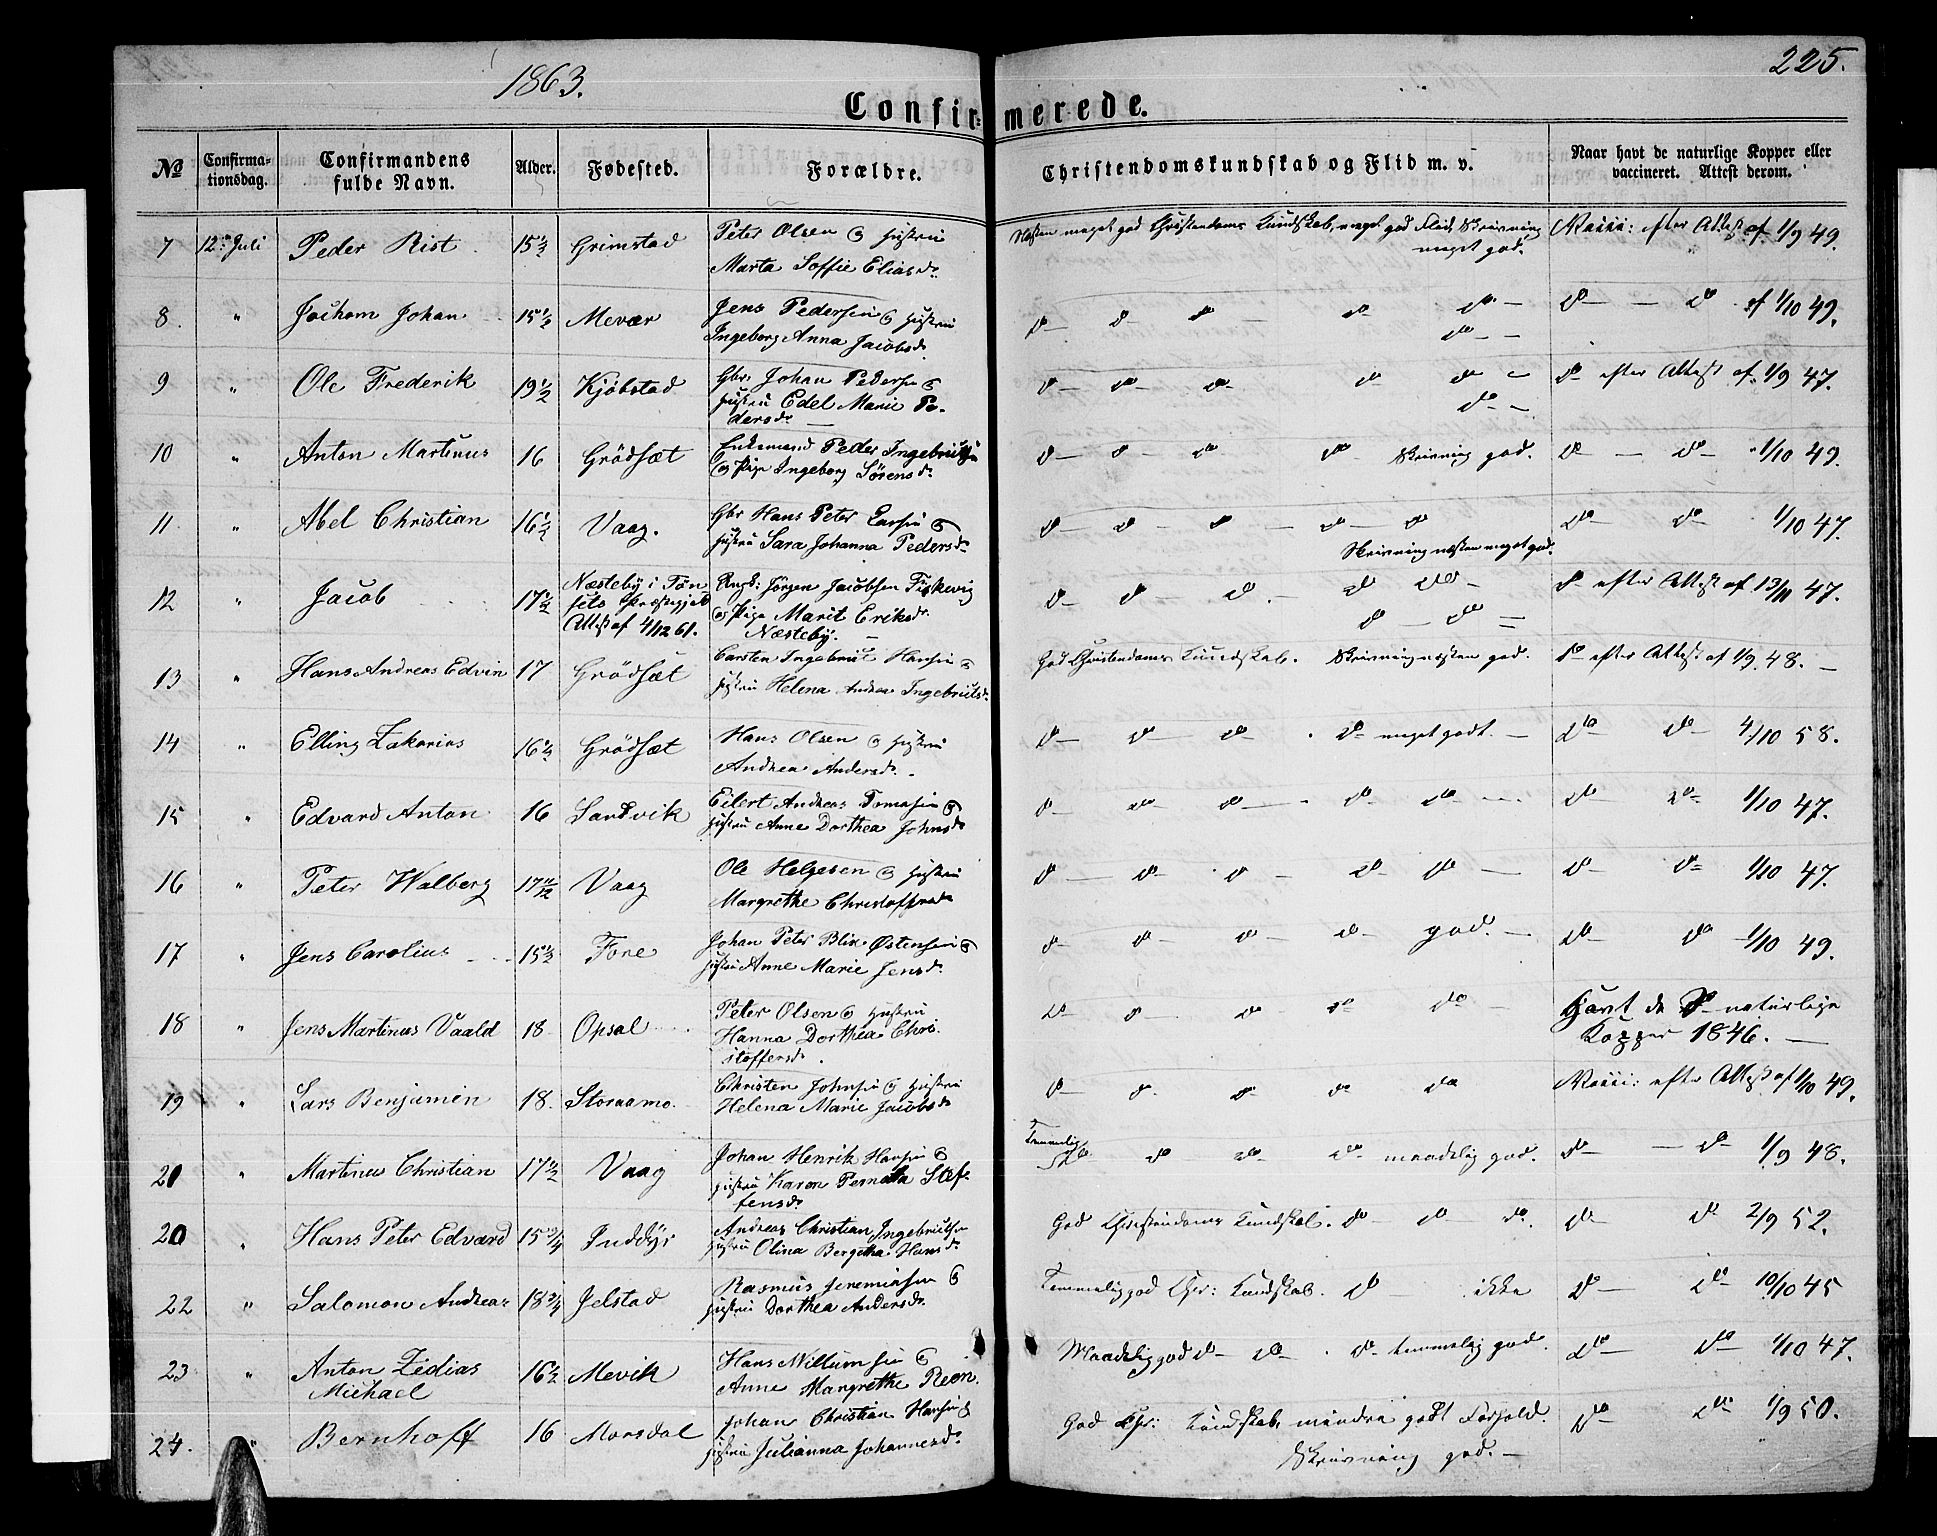 1863.
225.
Confirmerede.
№ Confirmationsdag. Confirmandens fulde Navn. Alder. Fødested. Forældre. Christendomskundskab og Flid m. v. Naar havt de naturlige Kopper eller vaccineret. Attest derom.
7 12te Juli Peder Rist 15 1/2 Grimstad Peter Olsen & Hustru Næsten meget god Christendoms Kundskab, meget god Flid, Skrivning Vacci: efter Attest af 1/9 49.
Marta Soffie Eliasd. meget god.
8. " Jochom Johan 15 1/2 Mevær Jens Pedersen & Hustru do do do do do do do af 1/10 49.
Ingeborg Anna Jacobsd. do
9 " Ole Frederik 19 1/2 Kjøbstad Gbr. Johan Pedersen & do do do do do do efter Attest af 1/9 47.
Hustru Edel Marie Pe- do
dersd.
10 " Anton Martinus 16 Grödsæt Enkemand Peder Ingebrigtsen do do do do Skrivning god. do do 1/10 49.
& Pige Ingeborg Sørensd.
11. " Abel Christian 16 1/2 Vaag. Gbr Hans Peter Larsen & do do do do do do do 1/10 47.
Hustru Sara Johanna Pedersd. Skrivning næsten meget god.
12 " Jacob 17 1/2 Næsteby i Tøn- Ungk: Jørgen Jacobsen Fiskevig do do do do do do efter Attest af 13/11 47.
sets Præstegjeld & Pige Marit Eriksd. do do
Attest af 4/12 61. Næsteby.
13 " Hans Andreas Edvin 17 Grödsæt Carsten Ingebrigt Hansen & God Christendoms Kundskab. Skrivning næsten god. do efter Attest af 1/9 48.
Hustru Helena Andrea Ingebrigtsd.
14 " Elling Zakarias 16 1/2 Grödsæt Hans Olsen & Hustru do do do do meget godt. do do 4/10 58.
Andrea Andersd.
15 " Edvard Anton 16 Sandvik Eilert Andreas Tomasen & do do do do do do do 1/10 47.
Hustru Anne Dorthea Johnsd.
16 " Peter Walberg 17 11/12 Vaag Ole Helgesen & Hustru do do do do do do do 1/10 47.
Margrethe Christoffersd.
17 " Jens Carolius 15 1/2 Fore Johan Peter Blix Østensen & do do do do god. do do 1/10 49.
Hustru Anne Marie Jensd.
18 " Jens Martinus Vaald 18 Opsal Peter Olsen & Hustru do do do do do Havt de naturlige
Hanna Dorthea Chri- Kopper 1846.
stoffersd.
19 " Lars Benjamin 18. Storaamo. Christen Johnsen & Hustru do do do do do Vacci: efter Attest af 1/10 49.
Helena Marie Jacobsd.
20 " Martinus Christian 17 1/2 Vaag Johan Henrik Hansen & Temmelig do do do do maadelig god. do do 1/9 48.
Hustru Karen Pernella Stef-
fensd.
20 " Hans Peter Edvard 15 3/4 Inddyr Andreas Christian Ingebrigtsen God Christendoms Kundskab. do do do do do 2/9 52.
Hustru Olina Bergitha Hansd.
22 " Salomon Andreas 18 3/4 Jelstad Rasmus Jeremiasen & Temmelig god Chr: Kundskab. do ikke do do 10/10 45
Hustru Dorthea Andersd.
23 " Anton Zidias 16 1/2 Mevik Hans Willumsen & Maadelig god do do do temmelig god. do do 1/10 47.
Michael Anne Margrethe
24. " Bernhoff 16 Morsdal Johan Christian Hansen & God Chr: Kundskab, mindre godt Forhold. do do 1/9 50.
Hustru Julianna Johannesd. Skrivning god.